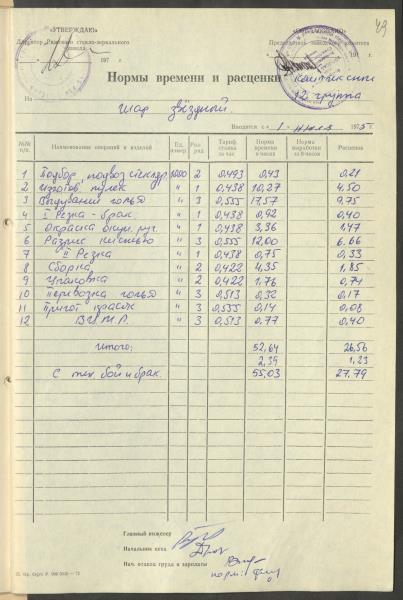 49
«УТВЕРЖДАЮ»
Директор стекло-зеркального
завода
197 г.
Председатель заводского комитета
197 г.
Нормы времени и расценки
12 группа
На шар звёздной.
Вводятся с «1» июля 1975 г.
№№ п/п. Наименование операций и изделий Ед. измер. Раз-ряд Тариф. ставка за час Норма времени в часах Норма выработки за 8 часов Расценка
1 Подбор, подвоз стеклодр. 1000 2 0,493 0,43 0,21
2 Изготов. пулек " 1 0,438 10,27 4.50
3 Выдувание голья " 3 0,555 17,57 9,75
4 I Резка - брак " 1 0,438 0,92 0,40
5 Окраска окун. руч. " 1 0,438 3,36 1,47
6 Разрис кистью " 3 0,555 12,00 6.66
7 II Резка " 1 0,438 0,75 0,33
8 Сборка " 2 0,422 4,35 1,85
9 Упаковка " 2 0,422 1,76 0,74
10 Перевозка голья " 3 0,513 0,32 0,17
11 Пригот красок " 3 0,555 0,14 0,08
12 " 3 0,513 0,77 0,40
Итого: 52,64 26,56
2,39 1,23
С тех. бой и брак. 55,03 27.79
Главный инженер
Начальник цеха
Нач. отдела труда и зарплаты
норм: